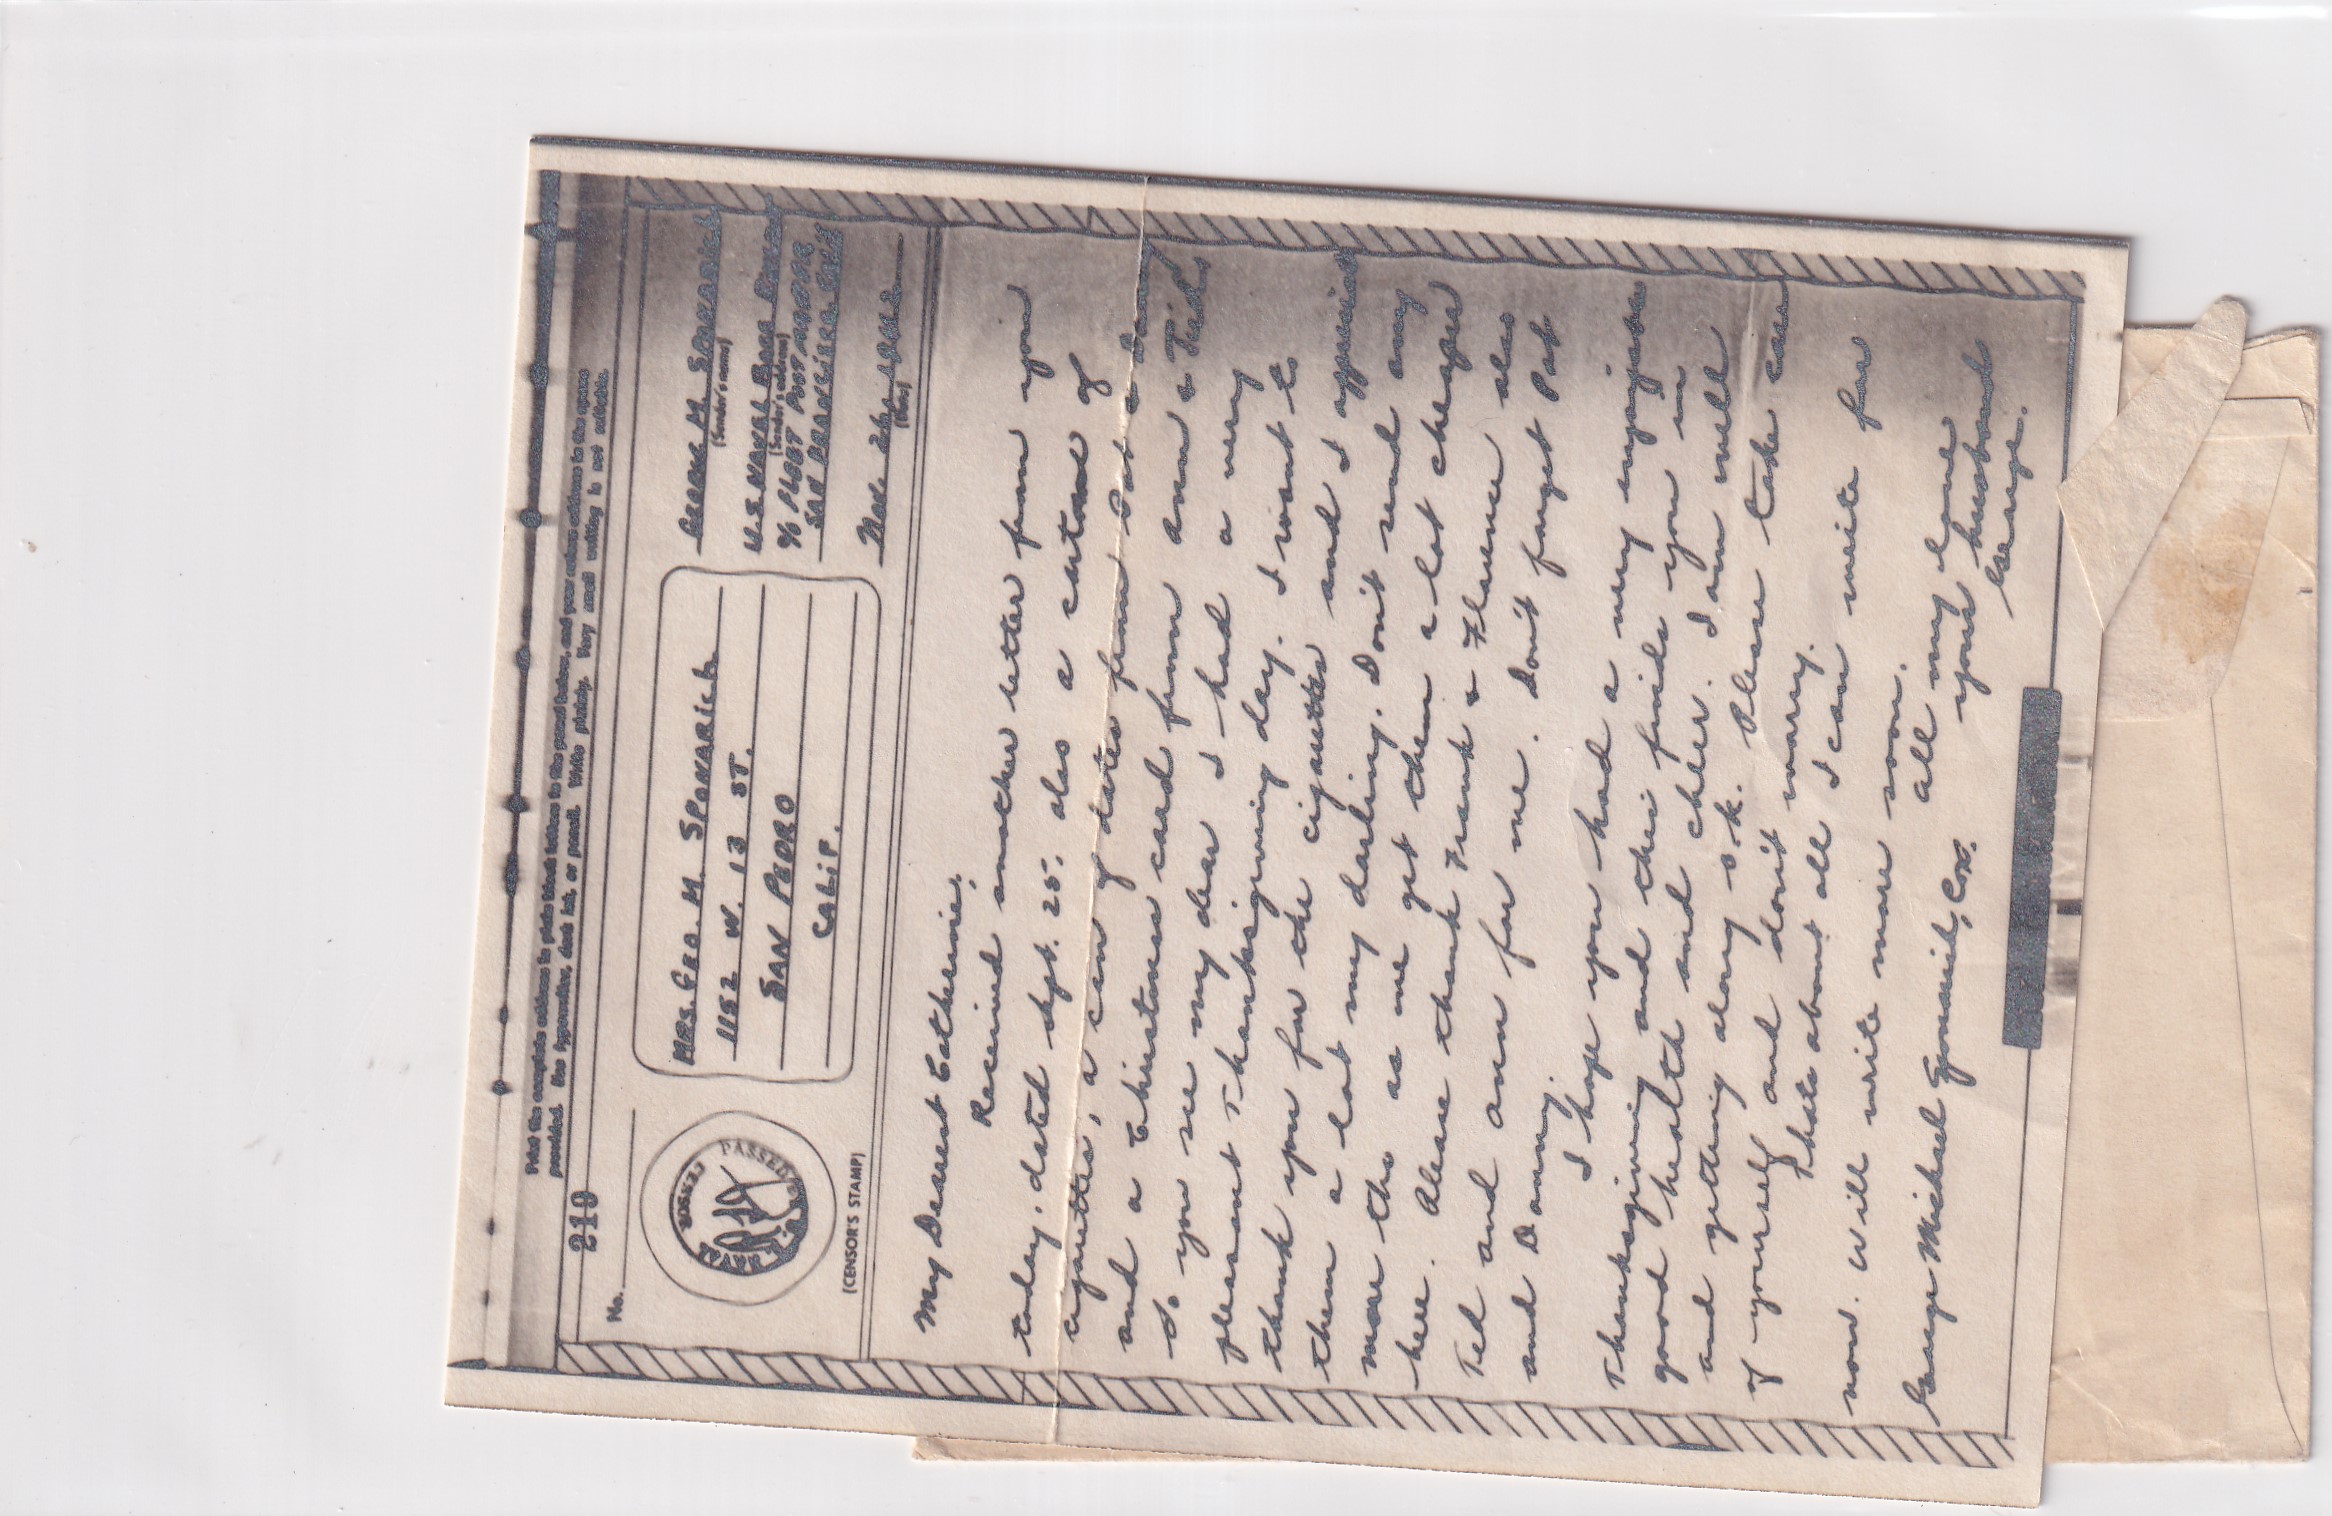 Print the complete address in plain block letters in the panel below, and your return address in the space
provided. Use typewriter, dark ink, or pencil. Write plainly. Very small writing is not suitable.
219
No.
CENSOR
PASSED
(CENSOR'S STAMP)
MRS. GEO. M. SPONARICH
1152 W. 13 ST.
SAN PEDRO
CALIF.
GEORGE M. SPONARICH
(Sender's name)
U.S. NAVAL BASE
(Sender's address)
% FLEET POSTMASTER
SAN FRANCISCO CALIF
Nov. 26, 1942
(Date)
My Dearest Catherine;
Received another letter from you
today. dated Sept. 25, also a cartone of
cigarettes, a can of dates from Pat & Danny
and a Christmas card from Ann & Ted.
So you see my dear I had a very
pleasant Thanksgiving day. I want to
thank you for the cigarettes and I appreciate
them a lot my darling. Don't send any
more tho as we get them a lot cheaper
here. Please thank Frank & Florence also
Ted and Ann for me. Don't forget Pat
and Danny.
I hope you had a very enjoyable
Thanksgiving and this finds you in
good health and cheer. I am well
and getting along o.k. Please take care
of yourself and don't worry.
Thats about all I can write for
now. Will write more soon.
All my love
your husband
George.
George Michael Sponarich, Cox.
V-MAIL